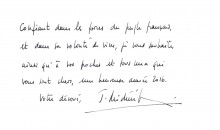 Confiant dans les forces du peuple français,
et dans sa volonté de vivre, je vous souhaite
ainsi qu'à vos proches et tous ceux qui
vous sont chers, une heureuse année
Votre dévoué,